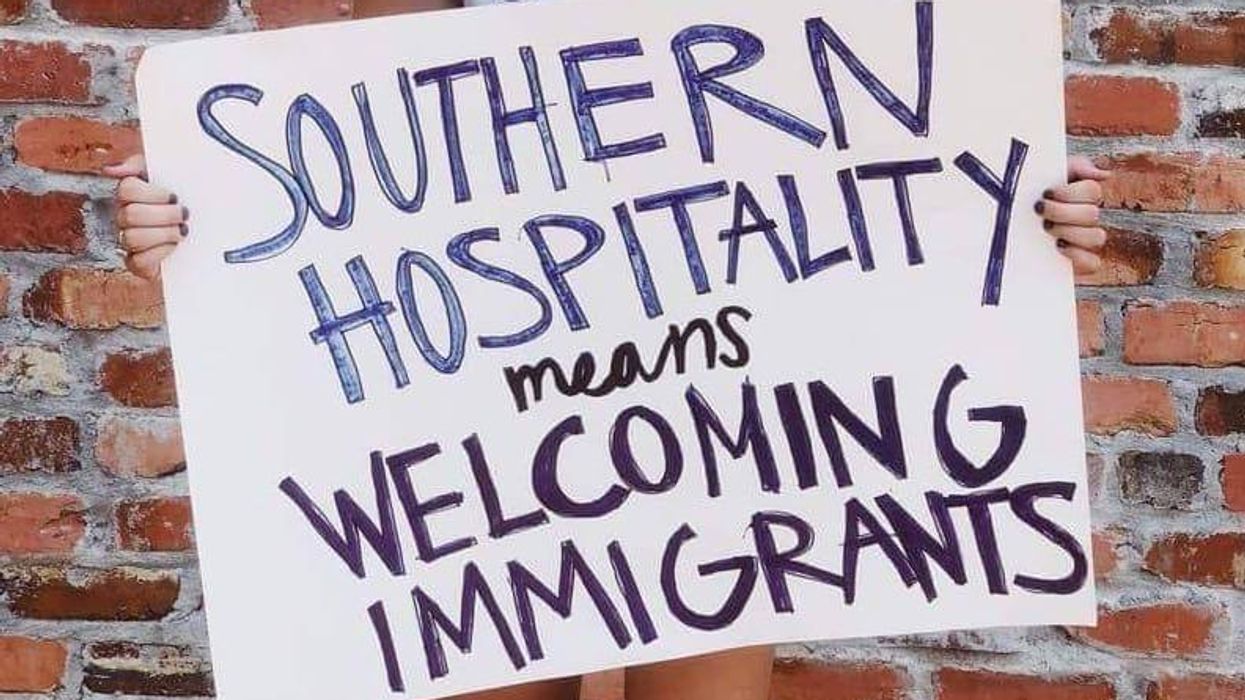 SOUTHERN
HOSPITALITY
means
WELCOMING
IMMIGRANTS